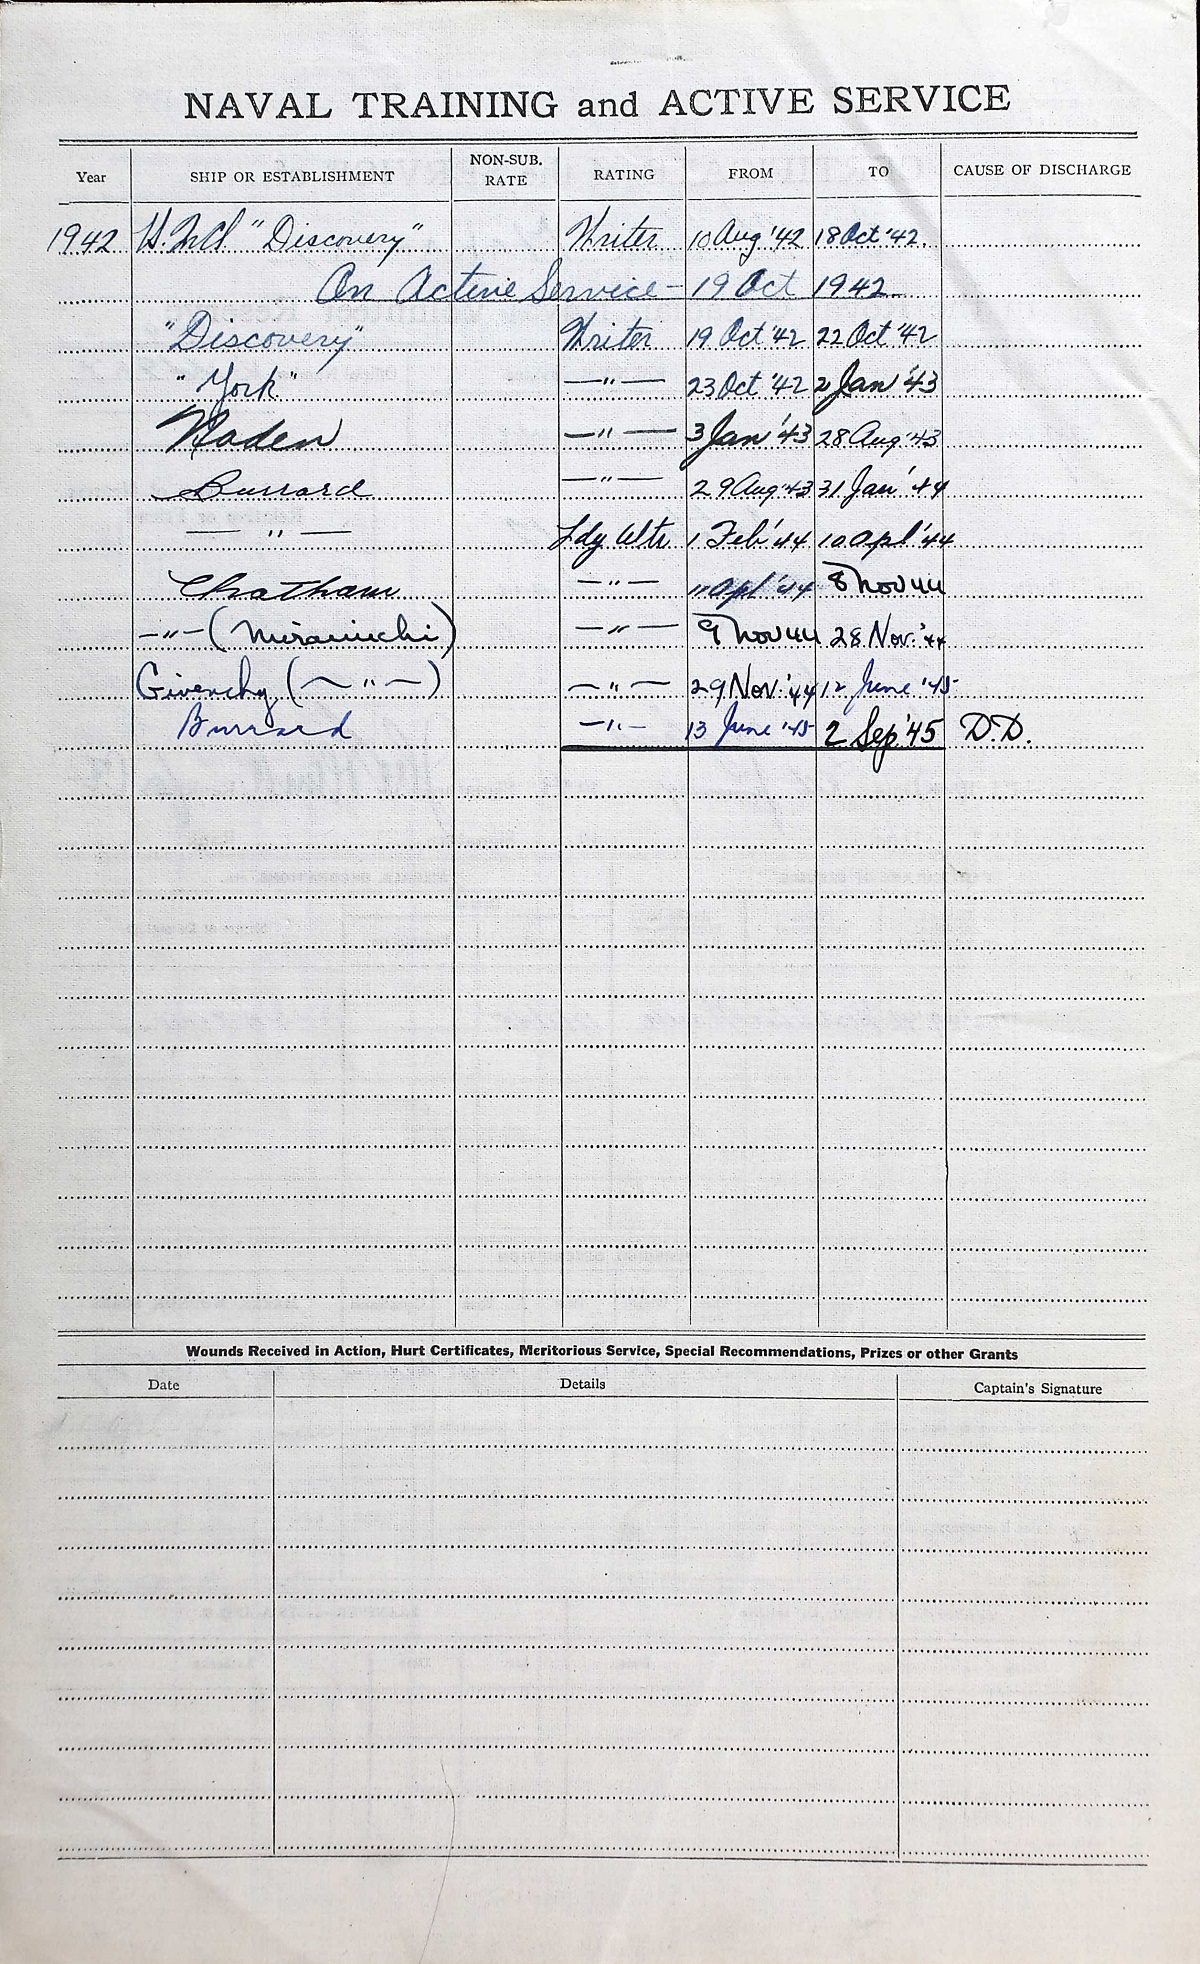 NAVAL TRAINING and ACTIVE SERVICE
Year SHIP OR ESTABLISHMENT NON-SUB. RATE RATING FROM TO CAUSE OF DISCHARGE
1942 "Discovery" Writer 10 Aug '42 18 Oct '42.
On Active Service - 19 Oct 1942
"Discovery" Writer 19 Oct '42 22 Oct '42
"York" —"— 23 Oct '42 2 Jan '43
Naden —"— 3 Jan '43 28 Aug '43
Burrard —"— 29 Aug '43 31 Jan '44
—"— Ldg Wtr 1 Feb '44 10 Apl '44
Chatham —"— 11 Apl '44 8 Nov 44
—"— (Miramichi) —"— 9 Nov 44 28 Nov. '44
Givenchy (—"—) —"— 29 Nov. '44 12 June '45
Burrard —"— 13 June '45 2 Sep. '45 D.D.
Wounds Received in Action, Hurt Certificates, Meritorious Service, Special Recommendations, Prizes or other Grants
Date Details Captain's Signature